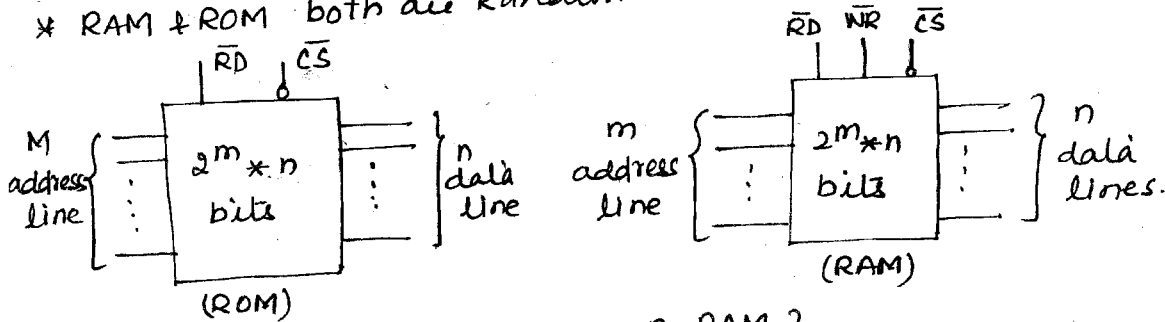 * RAM & ROM both are Random
R̅D̅ C̅S̅
M
address
line
2^m * n
bits
n
data
line
(ROM)
R̅D̅ W̅R̅ C̅S̅
m
address
line
2^m * n
bits
n
data
lines.
(RAM)
RAM ?